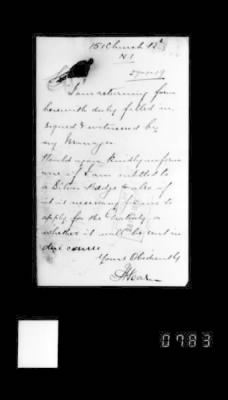 151 Church St
N1
I am returning form
herewith duly filled in
signed & witnessed by
my Manager
Would you kindly inform
me if I am entitled to
a Silver Badge & also if
it is necessary for me to
apply for the Gratuity, or
whether it will be sent in
due course
Yours Obediently
0783